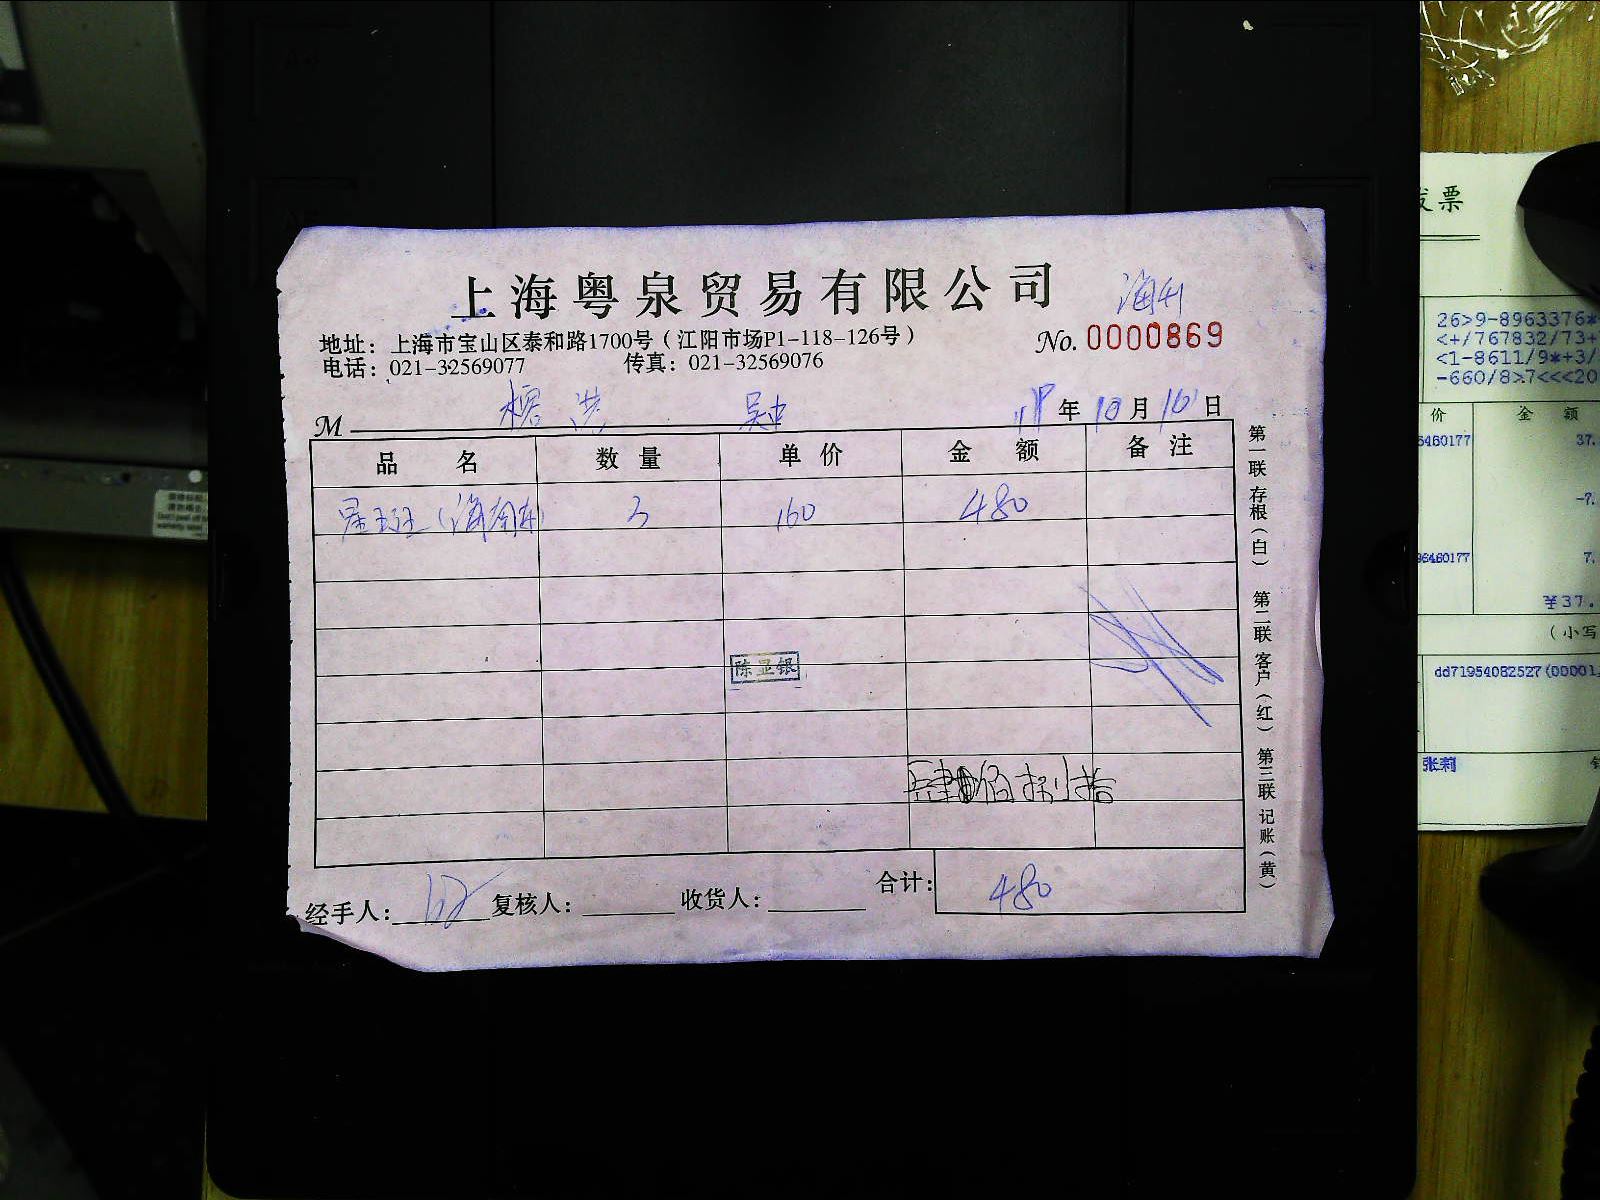 上海粤泉贸易有限公司
地址：上海市宝山区泰和路1700号（江阳市场P1-118-126号）
No. 0000869
电话：021-32569077 传真：021-32569076
M 榕港 吴中 年 10 月 10 日
品名 数量 单价 金额 备注
星斑（海南 3 160 480
陈显银
肆佰捌拾
合计： 480
经手人： 复核人： 收货人：
第一联 存根（白） 第二联 客户（红） 第三联 记账（黄）
发票
26>9-8963376*
<+/767832/73+
<1-8611/9*+3/
-660/8>7<<<20
价 金 额
6460177 37.
-7.
96460177 7.
¥37.
（小写
dd71954082527(00001,
张莉